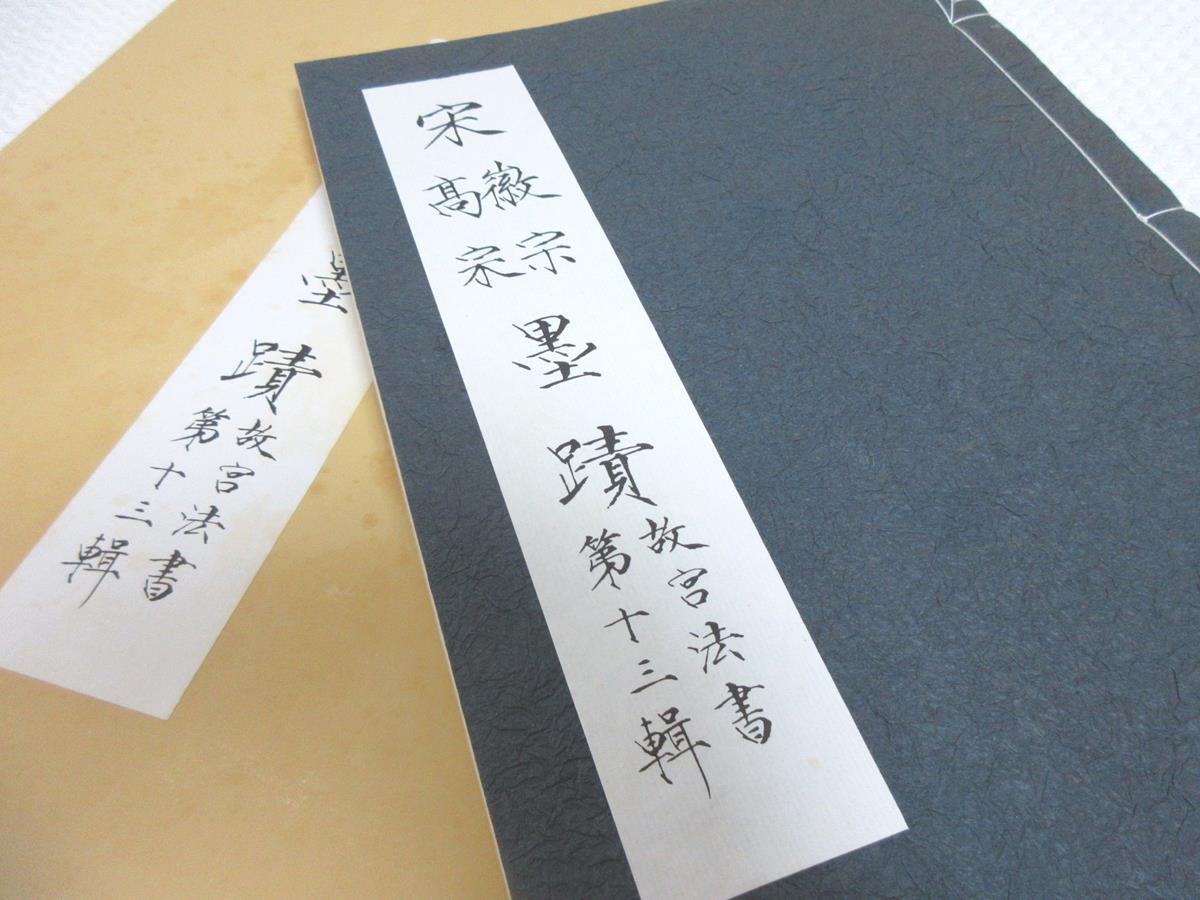 宋
徽宗
高宗
墨蹟
故宮法書
第十三輯
墨蹟
故宮法書
第十三輯